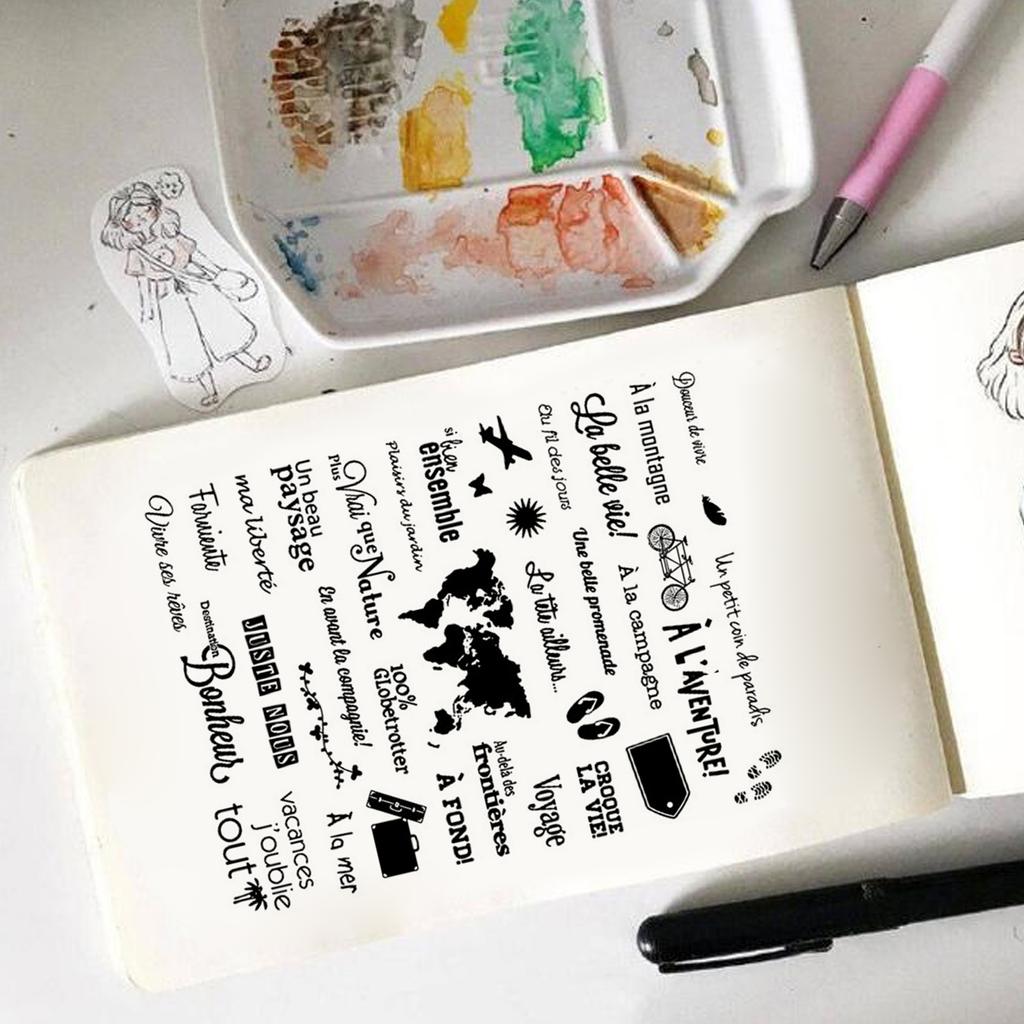 Douceur de vivre
Un petit coin de paradis
À la montagne
À L'AVENTURE!
La belle vie!
À la campagne
Au fil des jours
Une belle promenade
CROQUE
LA VIE!
La tête ailleurs...
Voyage
si bien
ensemble
Au-delà des
frontières
À FOND!
Plaisirs du jardin
Plus Vrai que Nature
100%
GLobetrotter
Un beau
paysage
En avant la compagnie!
À la mer
ma liberté
JUSTE NOUS
vacances
j'oublie
tout
Farniente
Destination
Bonheur
Vivre ses rêves